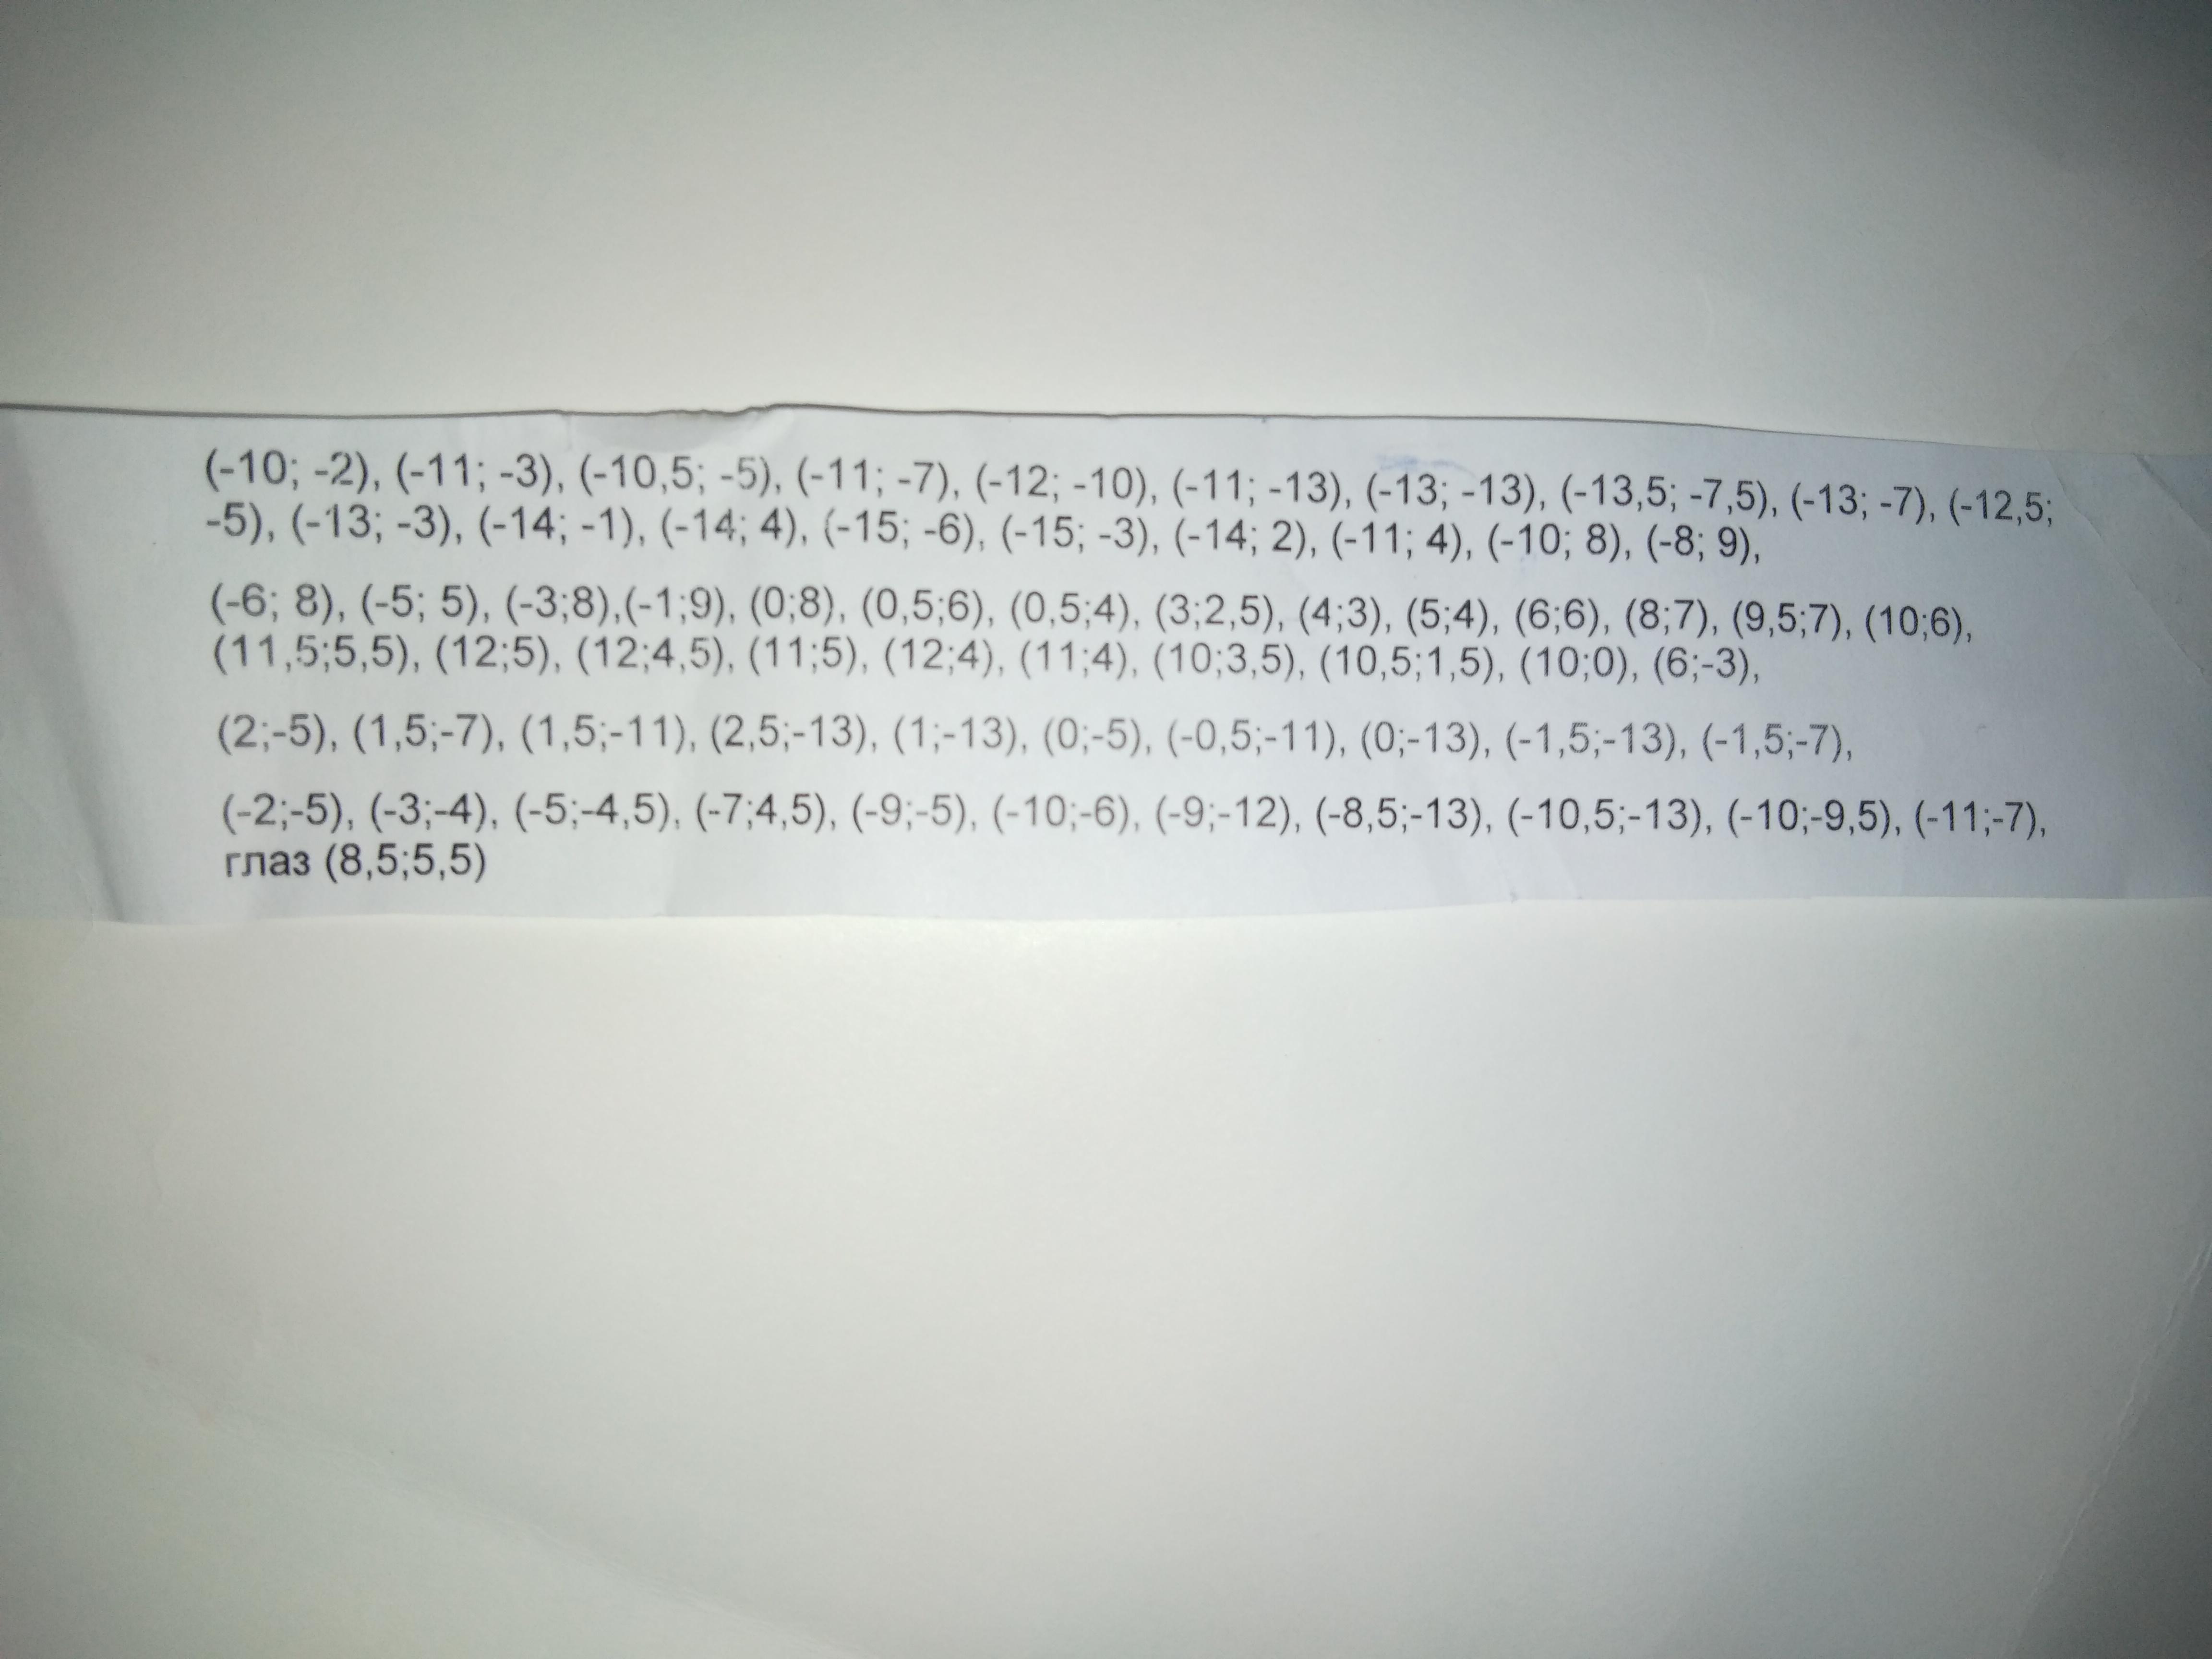 (-10; -2), (-11; -3), (-10,5; -5), (-11; -7), (-12; -10), (-11; -13), (-13; -13), (-13,5; -7,5), (-13; -7), (-12,5;
-5), (-13; -3), (-14; -1), (-14; 4), (-15; -6), (-15; -3), (-14; 2), (-11; 4), (-10; 8), (-8; 9),
(-6; 8), (-5; 5), (-3;8),(-1;9), (0;8), (0,5;6), (0,5;4), (3;2,5), (4;3), (5;4), (6;6), (8;7), (9,5;7), (10;6),
(11,5;5,5), (12;5), (12;4,5), (11;5), (12;4), (11;4), (10;3,5), (10,5;1,5), (10;0), (6;-3),
(2;-5), (1,5;-7), (1,5;-11), (2,5;-13), (1;-13), (0;-5), (-0,5;-11), (0;-13), (-1,5;-13), (-1,5;-7),
(-2;-5), (-3;-4), (-5;-4,5), (-7;4,5), (-9;-5), (-10;-6), (-9;-12), (-8,5;-13), (-10,5;-13), (-10;-9,5), (-11;-7),
глаз (8,5;5,5)